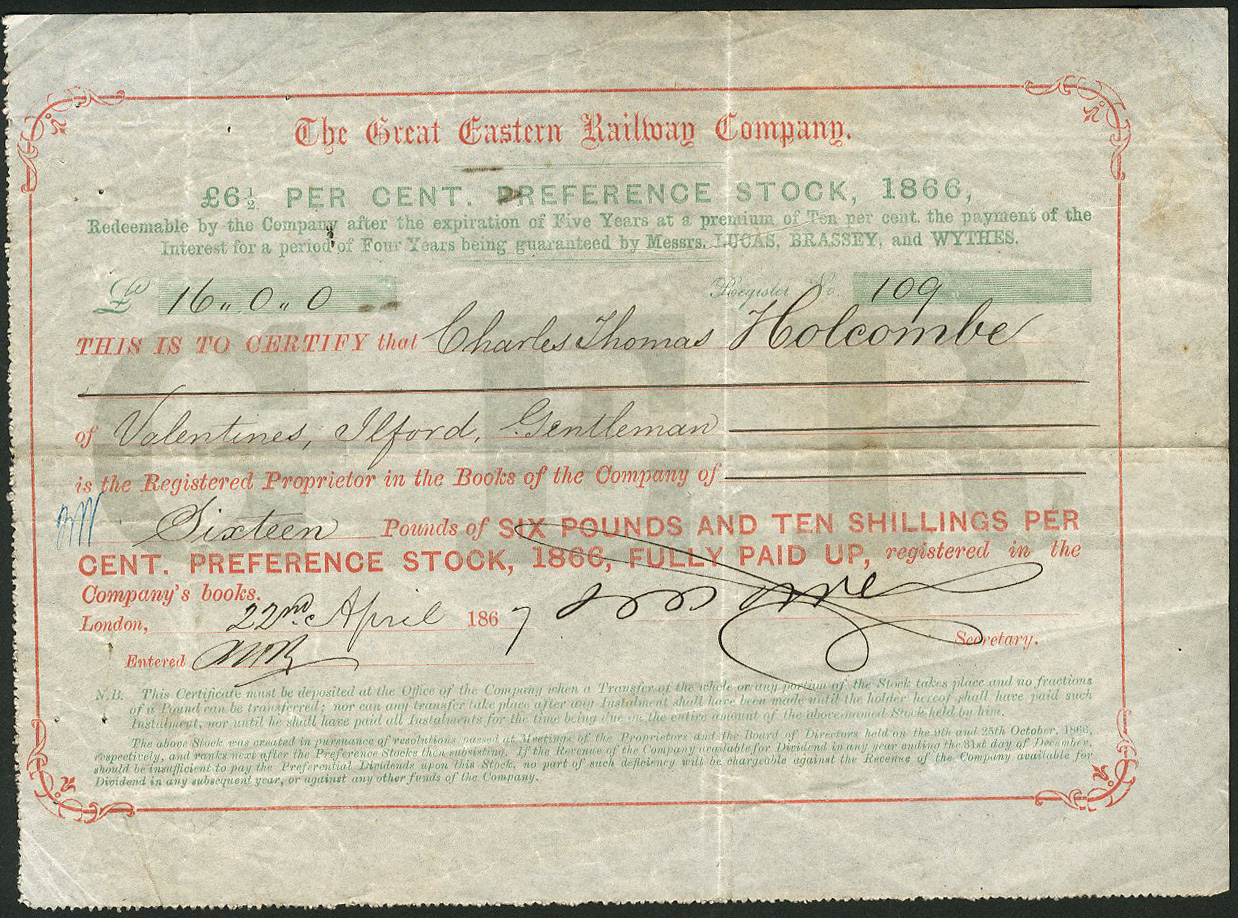 The Great Eastern Railway Company.
£6½ PER CENT. PREFERENCE STOCK, 1866,
Redeemable by the Company after the expiration of Five Years at a premium of Ten per cent. the payment of the
Interest for a period of Four Years being guaranteed by Messrs. LUCAS, BRASSEY, and WYTHES.
£ 16"0"0 Register No. 109
THIS IS TO CERTIFY that Charles Thomas Holcombe
of Valentines, Ilford, Gentleman
is the Registered Proprietor in the Books of the Company of
Sixteen Pounds of SIX POUNDS AND TEN SHILLINGS PER
CENT. PREFERENCE STOCK, 1866, FULLY PAID UP, registered in the
Company's books.
London, 22nd April 1867
Secretary.
Entered
N.B. This Certificate must be deposited at the Office of the Company when a Transfer of the whole or any portion of the Stock takes place and no fractions
of a Pound can be transferred; nor can any transfer take place after any Instalment shall have been made until the holder hereof shall have paid such
Instalment, nor until he shall have paid all Instalments for the time being due on the entire amount of the above-named Stock held by him.
The above Stock was created in pursuance of resolutions passed at Meetings of the Proprietors and the Board of Directors held on the 9th and 25th October, 1866,
respectively, and ranks next after the Preference Stocks then subsisting. If the Revenue of the Company available for Dividend in any year ending the 31st day of December,
should be insufficient to pay the Preferential Dividends upon this Stock, no part of such deficiency will be chargeable against the Revenue of the Company available for
Dividend in any subsequent year, or against any other funds of the Company.
G.E.R.